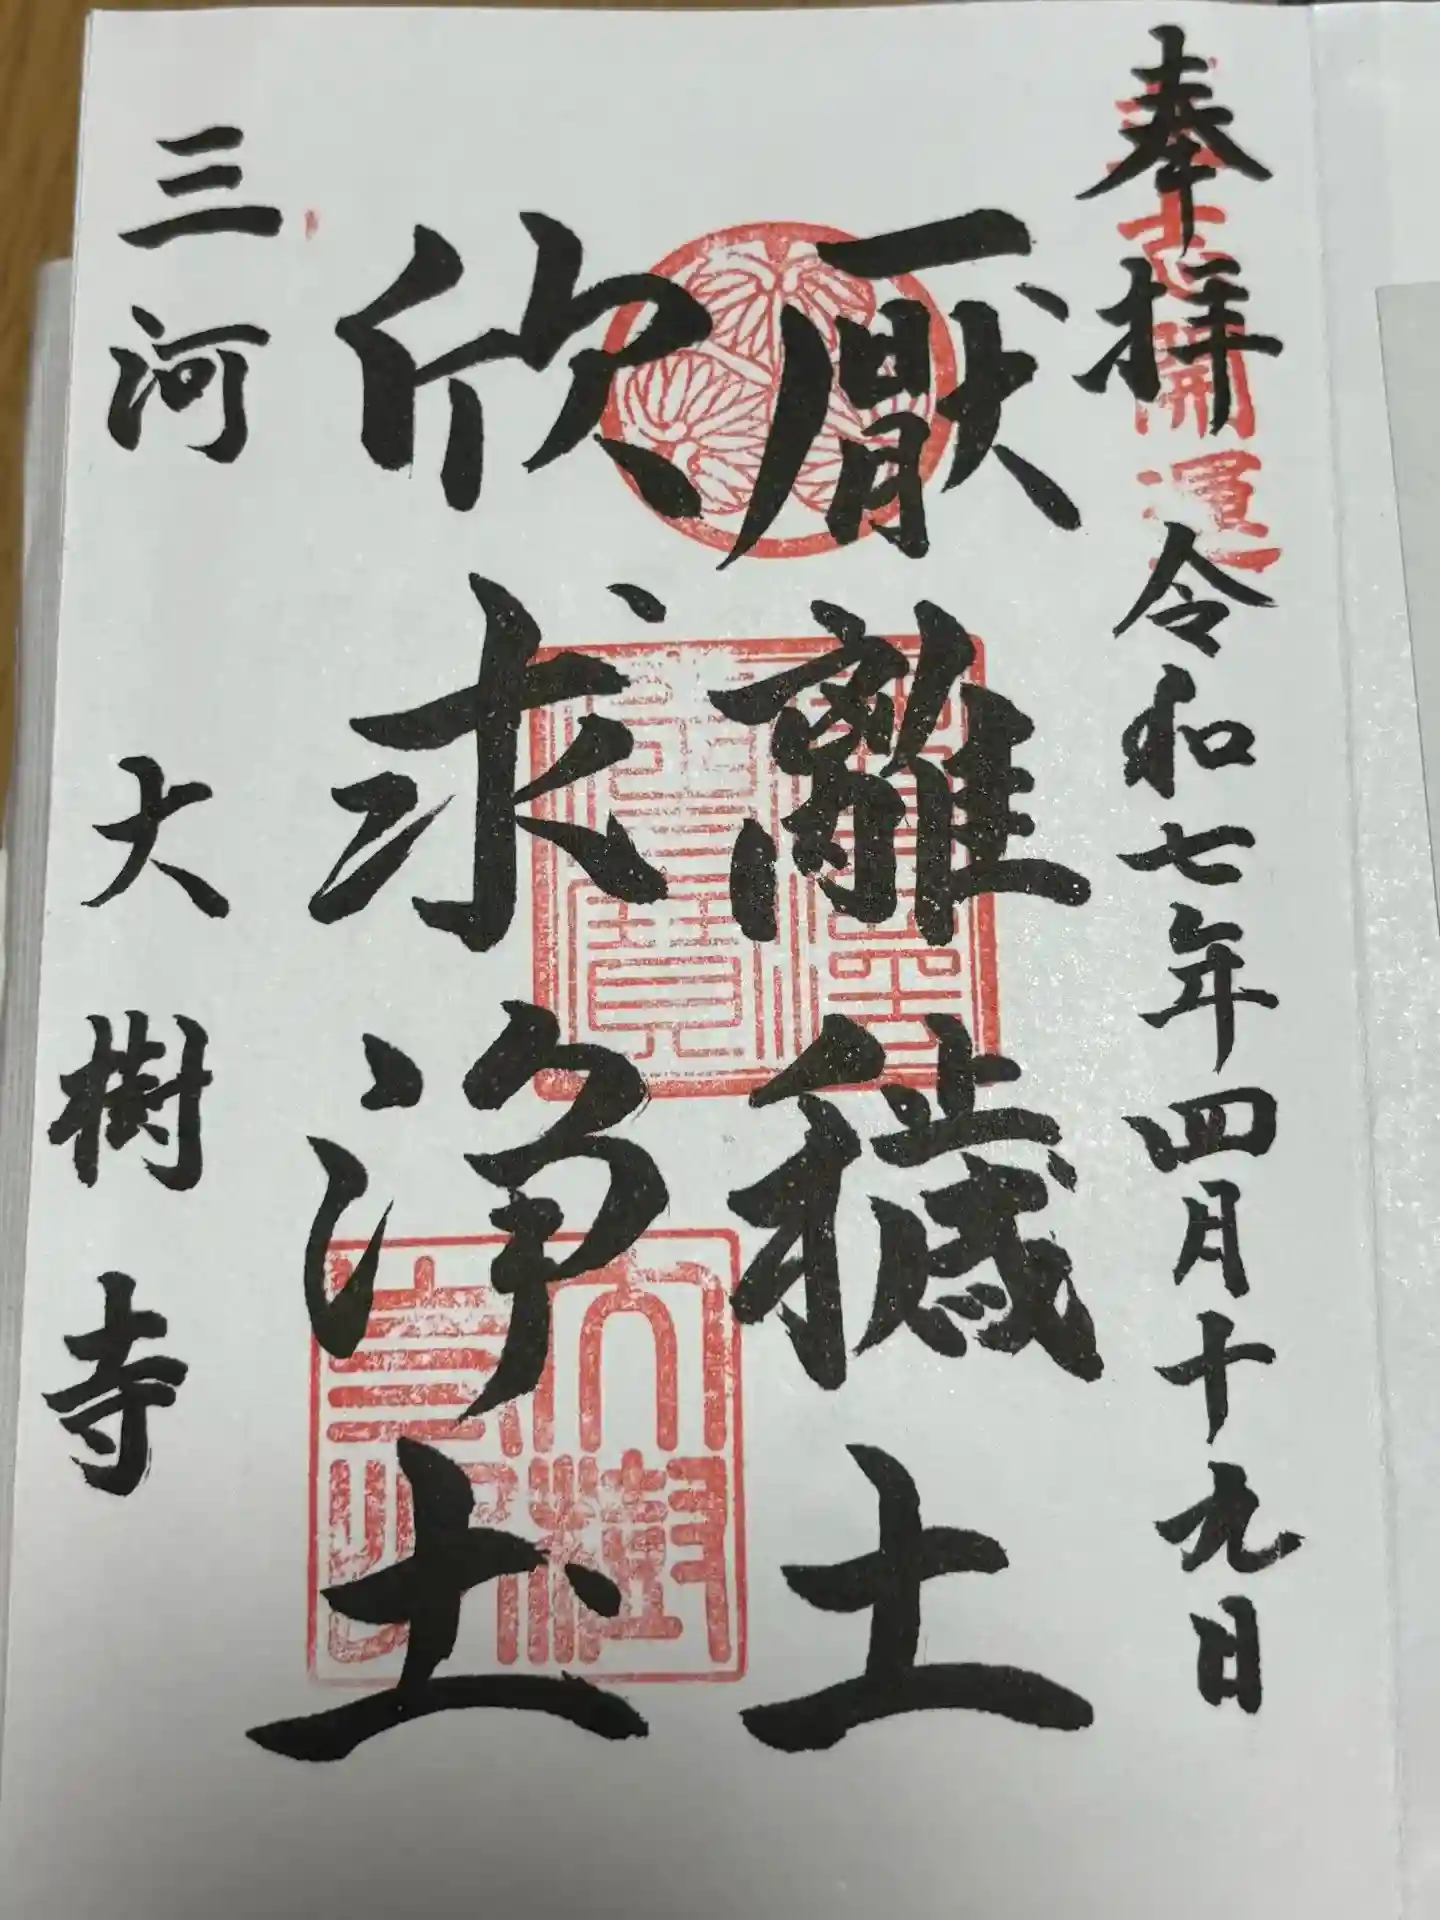 奉拝 令和七年四月十九日
厭離穢土
欣求浄土
三河 大樹寺
開運
大樹